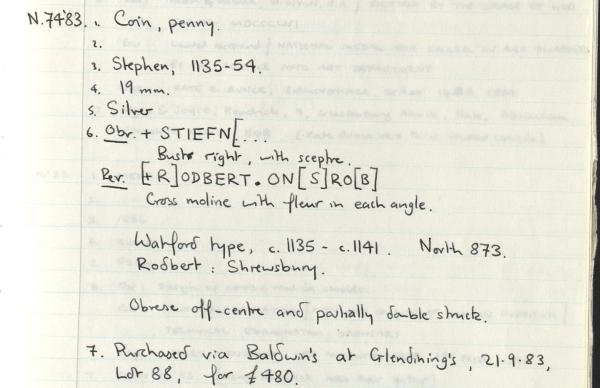 N.74'83. 1. Coin, penny.
2.
3. Stephen, 1135-54.
4. 19mm.
5. Silver
6. Obv. + STIEFN[...
Bust right, with sceptre.
Rev. [+R]ODBERT. ON[S]RO[B]
Cross moline with fleur in each angle.
Watford type, c.1135 - c.1141. North 873.
Rodbert: Shrewsbury.
Obverse off-centre and partially double struck.
7. Purchased via Baldwin's at Glendining's, 21.9.83,
Lot 88, for £480.